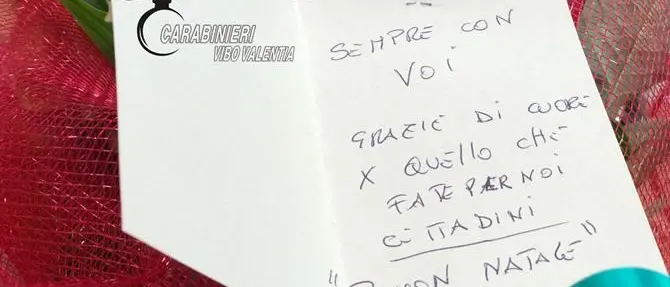 CARABINIERI
VIBO VALENTIA
SEMPRE CON
VOI
GRAZIE DI CUORE
X QUELLO CHE
FATE PER NOI
CITTADINI
"BUON NATALE"